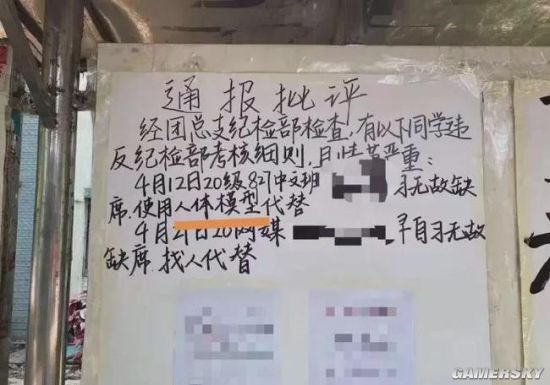 通报批评
经团总支纪检部检查,有以下同学违
反纪检部考核细则,且情节严重:
4月12日20级827中文班 习无故缺
席,使用人体模型代替
4月21日20网媒 早自习无故
缺席,找人代替
GAMERSKY